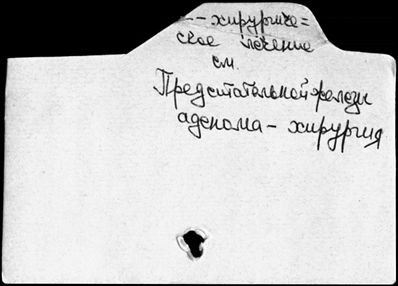 -- хирургиче=
ское лечение
см.
Предстательной железы
аденома - хирургия